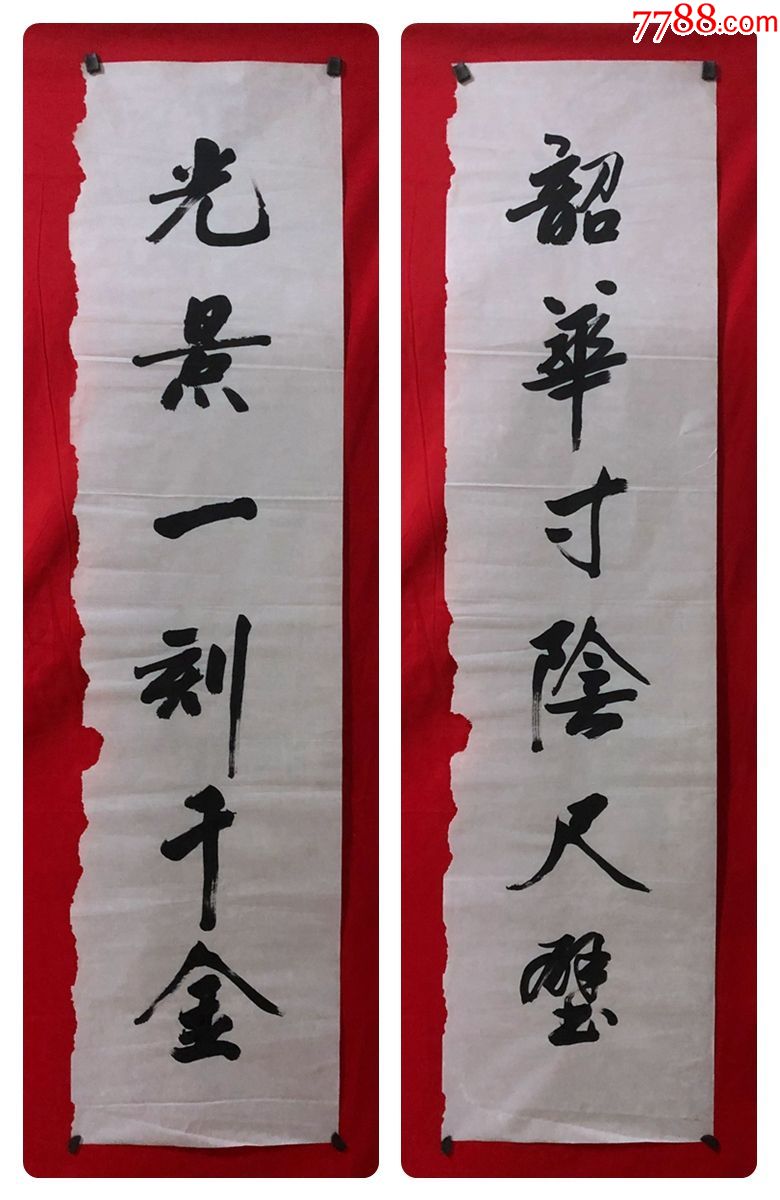 7788.com
韶華寸陰尺璧
光景一刻千金